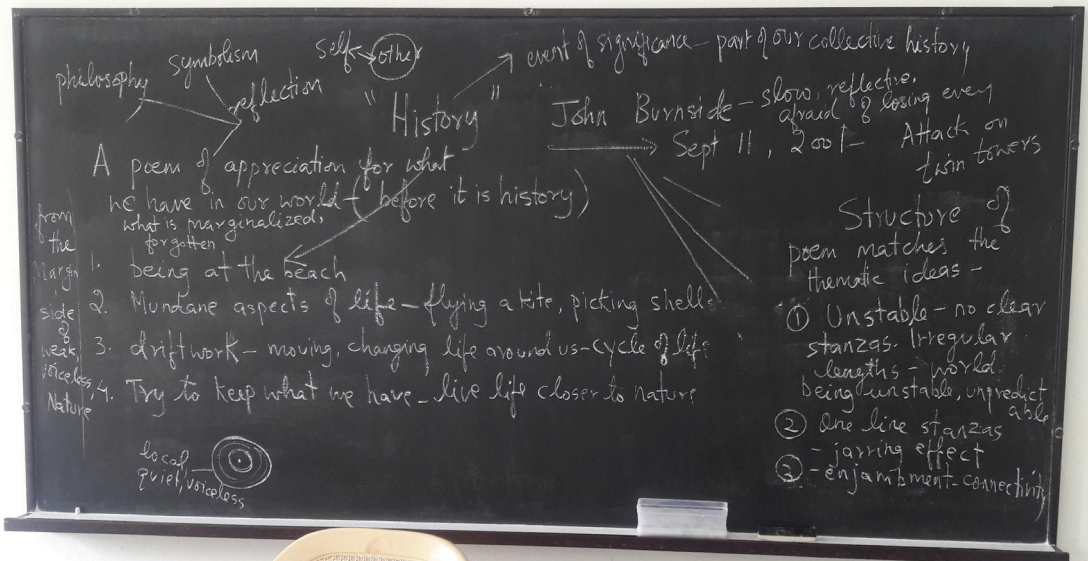 philosophy
symbolism
reflection
self ↔ other
event of significance - part of our collective history
"History"
John Burnside - slow, reflective,
afraid of losing every
Sept 11, 2001 - Attack on
twin towers
A poem of appreciation for what
we have in our world - (before it is history)
what is marginalized,
forgotten
1. being at the beach
2. Mundane aspects of life - flying a kite, picking shells
3. driftwork - moving, changing life around us - cycle of life
4. Try to keep what we have - live life closer to nature
from
the
Margin
side
of
weak,
voiceless,
Nature
local
quiet, voiceless
Structure of
poem matches the
thematic ideas -
① Unstable - no clear
stanzas. Irregular
lengths - world
being unstable, unpredict
able
② One line stanzas
- jarring effect
③ - enjambment - connectivity